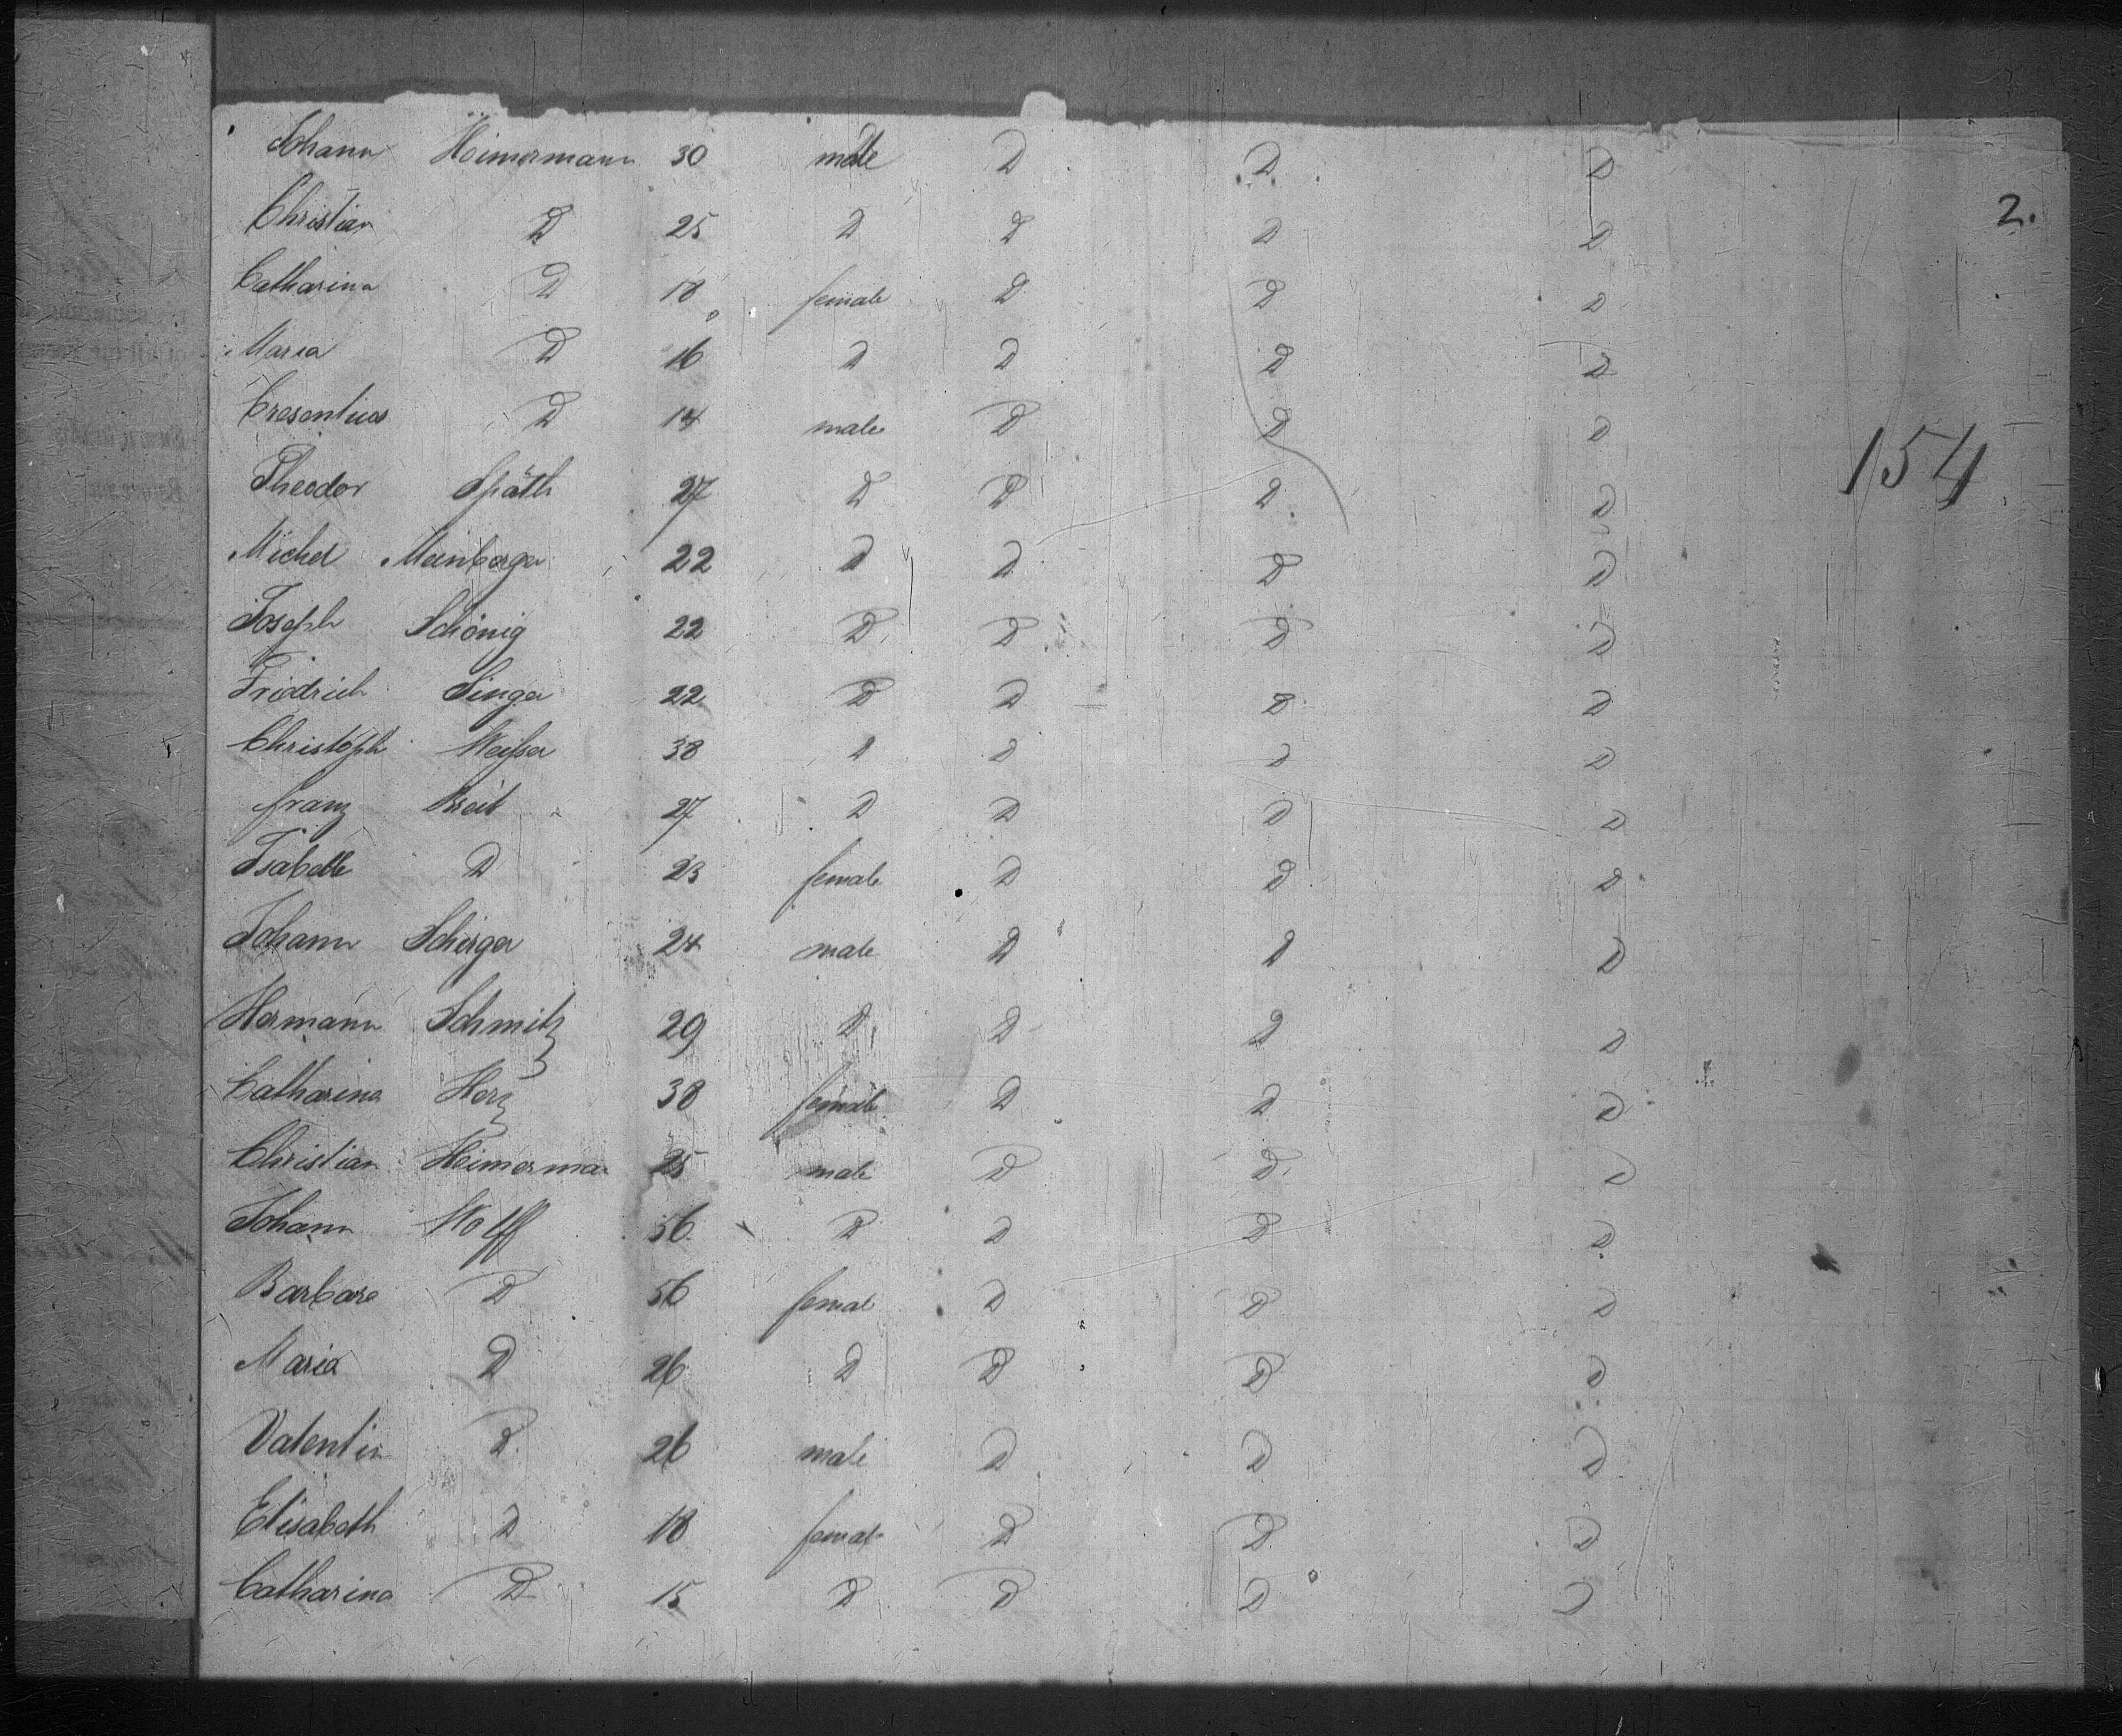 Johann Heimermann 30 male D D D
Christian D 25 D D D D
2.
Catharina D 18 female D D D
Maria D 16 D D D D
Cresentius D 14 male D D D
Theodor Späth 27 D D D D
154
Michel Meinberger 22 D D D D
Joseph Schönig 22 D D D D
Fridrich Singer 22 D D D D
Christoph 38 D D D D
franz Breit 27 D D D D
Isabelle D 23 female D D D
Johann Scherger 24 male D D D
Hermann Schmitz 29 D D D D
Catharina Herz 38 female D D D
Christian Heimerman 25 male D D D
Johann Wolff 56 D D D D
Barbara D 56 female D D D
Maria D 26 D D D D
Valentin D 26 male D D D
Elisabeth D 18 female D D D
Catharina D 15 D D D D